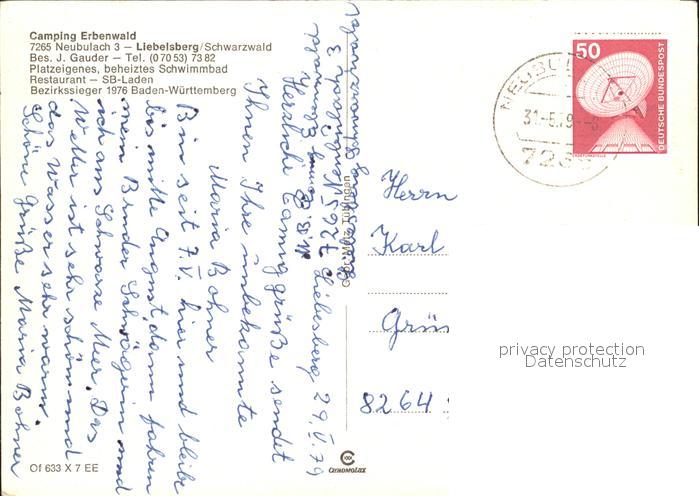 Camping Erbenwald
7265 Neubulach 3 – Liebelsberg/Schwarzwald
Bes. J. Gauder – Tel. (0 70 53) 73 82
Platzeigenes, beheiztes Schwimmbad
Restaurant – SB-Laden
Bezirkssieger 1976 Baden-Württemberg
Liebelsberg 29.V.79
Herzliche Campinggrüße sendet
Ihnen Ihre unbekannte
Maria Bohner
Bin seit 7.V. hier und bleibe
bis mitte August, dann fahren
mein Bruder Schwägerin und
ich ans Schwarze Meer. Das
Wetter ist sehr schön und
das Wasser sehr warm.
Schöne Grüße Maria Bohner
7265
3
Of 633 X 7 EE
CHROMOLUX
50
DEUTSCHE BUNDESPOST
31.-5.79
Herrn
Karl
8264
privacy protection
Datenschutz